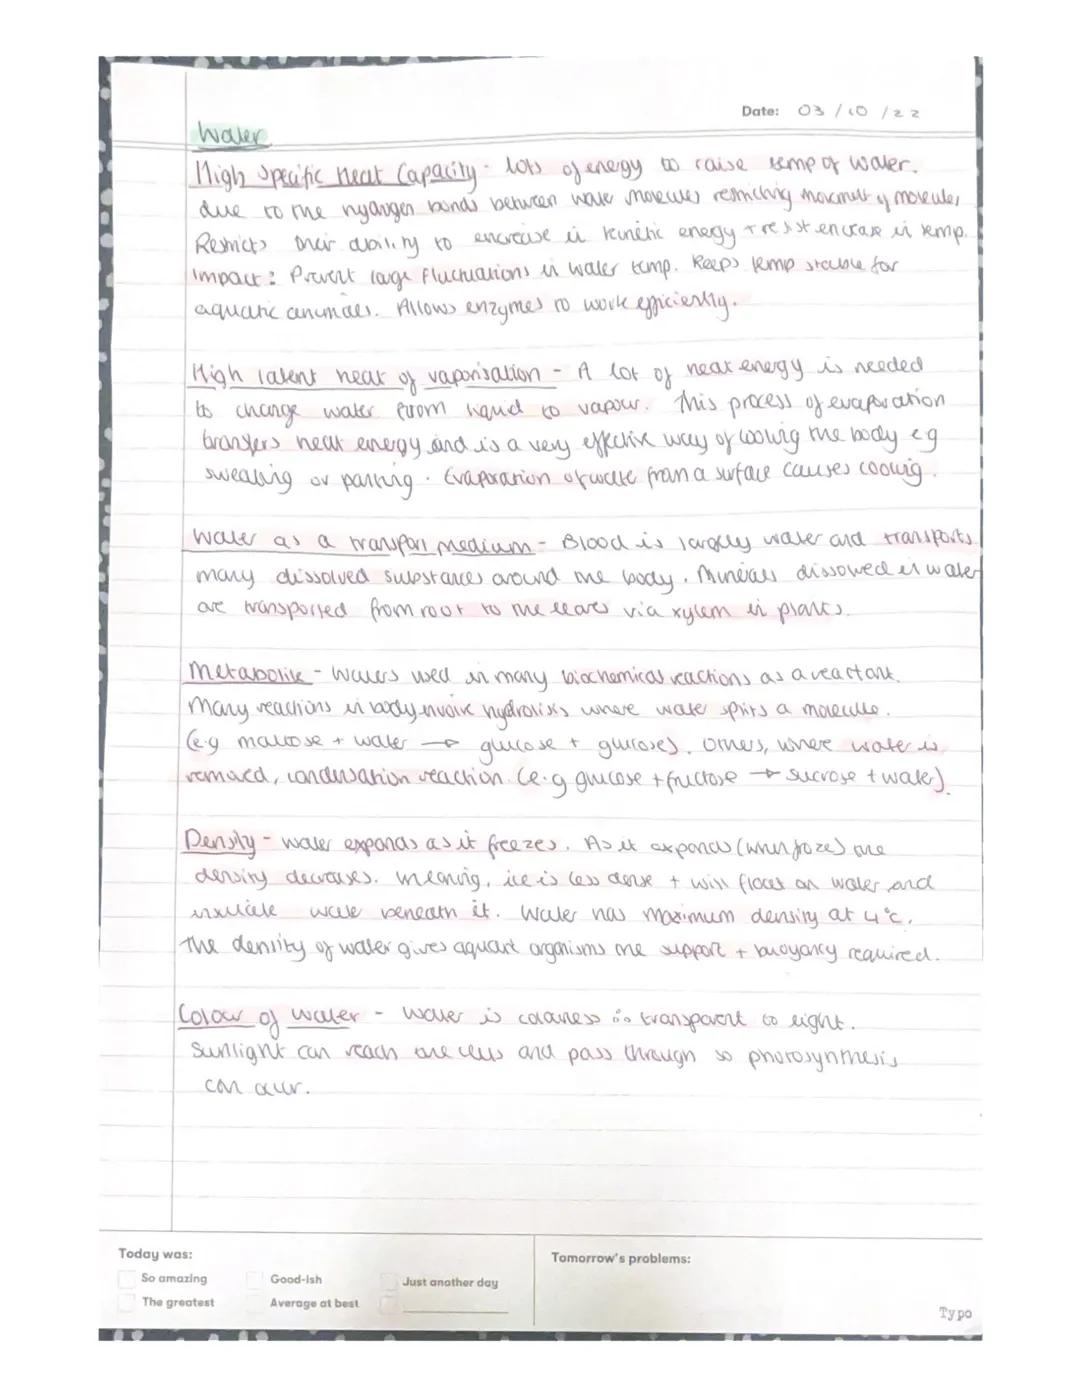 Date: 03/10/22
Water
High Specific Heat Capacity - lots of energy to raise temp of water.
due to the hydrogen bonds between water molecules restricting movement of molecules
Restricts their ability to encrease in kinetic energy + resist encrease in temp.
Impact: Prevent large fluctuations in water temp. Keeps temp stable for
aquatic animals. Allows enzymes to work efficiently.
High latent heat of vaporisation - A lot of heat energy is needed
to change water from liquid to vapour. This process of evaporation
transfers heat energy and is a very effective way of cooling the body eg
sweating or panting. Evaporation of water from a surface causes cooling.
Water as a transport medium - Blood is largely water and transports
many dissolved substances around the body. Minerals dissolved in water
are transported from root to the leaves via xylem in plants.
Metabolite - Water is used in many biochemical reactions as a reactant.
Many reactions in body involve hydrolisis where water splits a molecule.
(e.g maltose + water → glucose + glucose). Others, where water is
removed, condensation reaction. (e.g glucose + fructose → sucrose + water).
Density - water expands as it freezes. As it expands (when froze) the
density decreases. Meaning, ice is less dense + will float on water and
insulate water beneath it. Water has maximum density at 4°c.
The density of water gives aquatic organisms the support + buoyancy required.
Colour of water - Water is colourless ∴ transparent to light.
Sunlight can reach the cells and pass through so photosynthesis
can occur.
Today was:
So amazing Good-ish Just another day
The greatest Average at best
Tomorrow's problems:
Typo